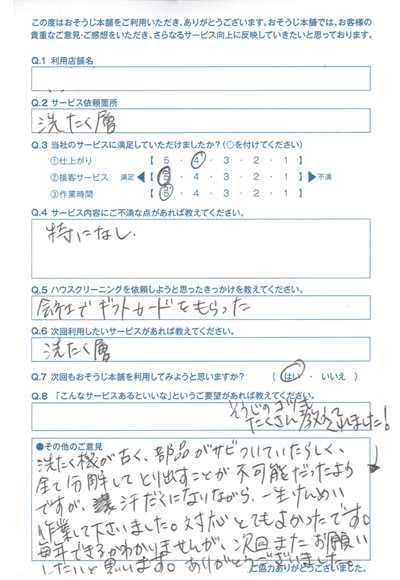 この度はおそうじ本舗をご利用いただき、ありがとうございます。おそうじ本舗では、お客様の
貴重なご意見・ご感想をいただき、さらなるサービス向上に反映していきたいと思っております。
Q.1 利用店舗名
Q.2 サービス依頼箇所
洗たく層
Q.3 当社のサービスに満足していただけましたか?(○を付けてください)
①仕上がり 【 5 ・ 4 ・ 3 ・ 2 ・ 1 】
②接客サービス 満足 ◀【 5 ・ 4 ・ 3 ・ 2 ・ 1 】▶ 不満
③作業時間 【 5 ・ 4 ・ 3 ・ 2 ・ 1 】
Q.4 サービス内容にご不満な点があれば教えてください。
特になし.
Q.5 ハウスクリーニングを依頼しようと思ったきっかけを教えてください。
会社でギフトカードをもらった
Q.6 次回利用したいサービスがあれば教えてください。
洗たく層
Q.7 次回もおそうじ本舗を利用してみようと思いますか? ( はい ・ いいえ )
Q.8 「こんなサービスあるといいな」というご要望があれば教えてください。
そうじの
たくさん教えて
くれました!
●その他のご意見
洗たく機が古く、部品がサビついていたらしく、
全て分解してとり出すことが不可能だったよう
ですが、汗だくになりながら、一生けんめい
作業して下さいました。対応とてもよかったです。
毎年できるかわかりませんが、次回またお願い
したいと思います。ありがとうございました。
ご協力ありがとうございました。